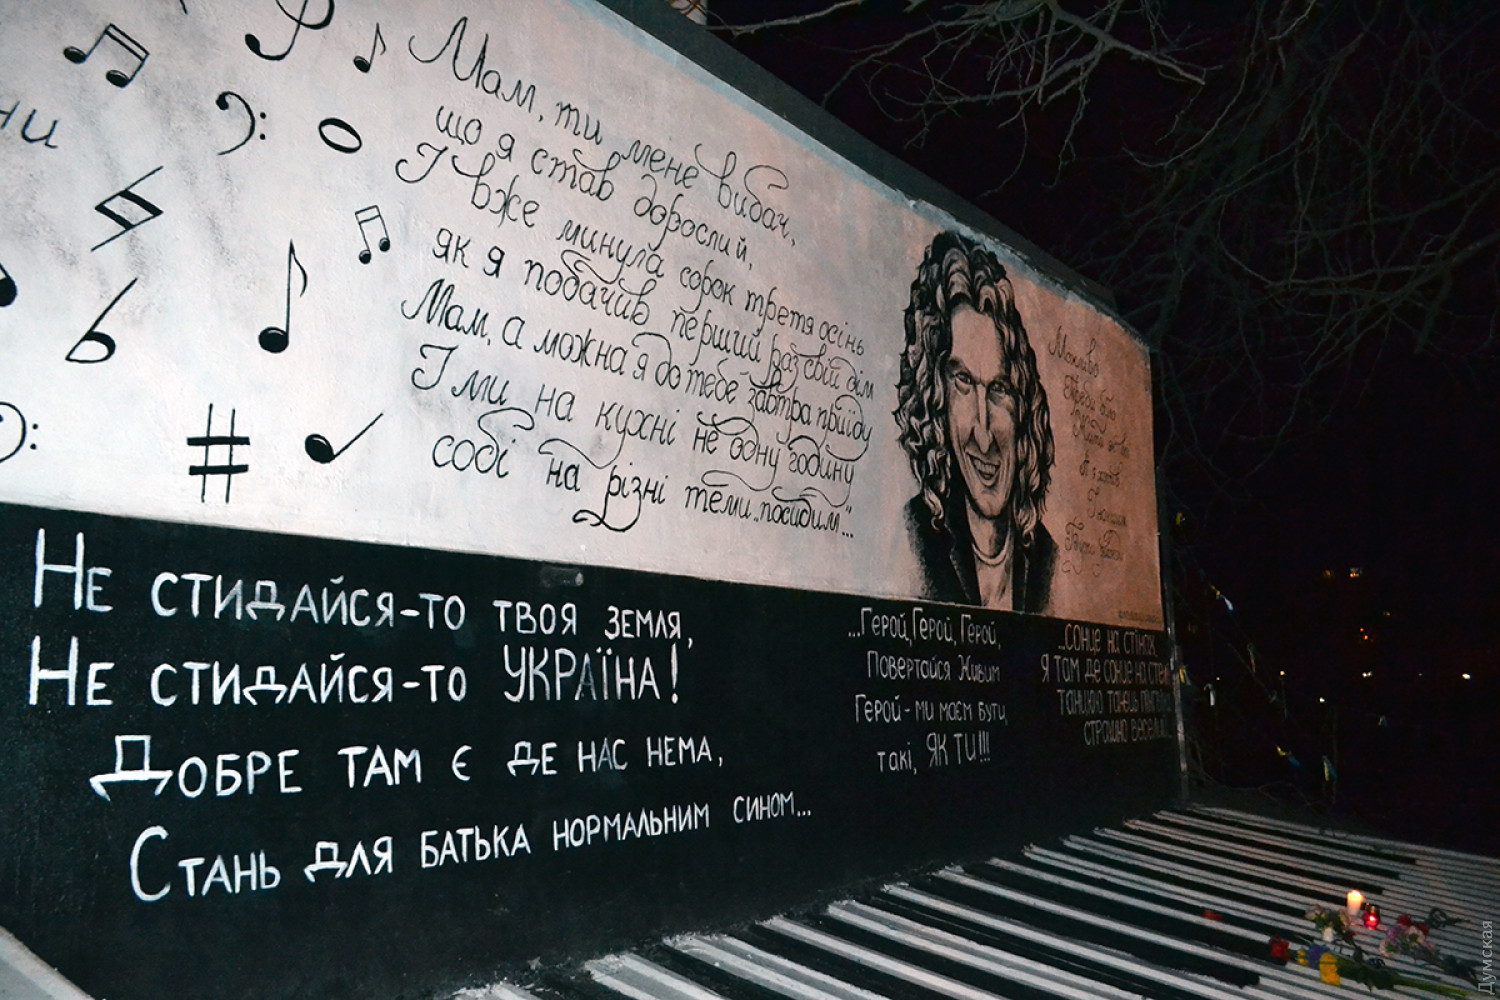 ни
Мам, ти мене вибач,
що я став дорослий,
І вже минула сорок третя осінь
як я побачив перший раз свій дім
Мам, а можна я до тебе завтра приїду
І ми на кухні не одну годину
собі на різні теми "посидим"...
Можливо
Не стидайся-то твоя земля,
Не стидайся-то УКРАЇНА!
Добре там є де нас нема,
Стань для батька нормальним сином...
...Герой, Герой, Герой,
Повертайся Живим
Герой - ми маєм бути,
такі, ЯК ТИ!!!
...сонце на стінах
Я там де сонце на
танцюю танець
страшно веселий
Думская